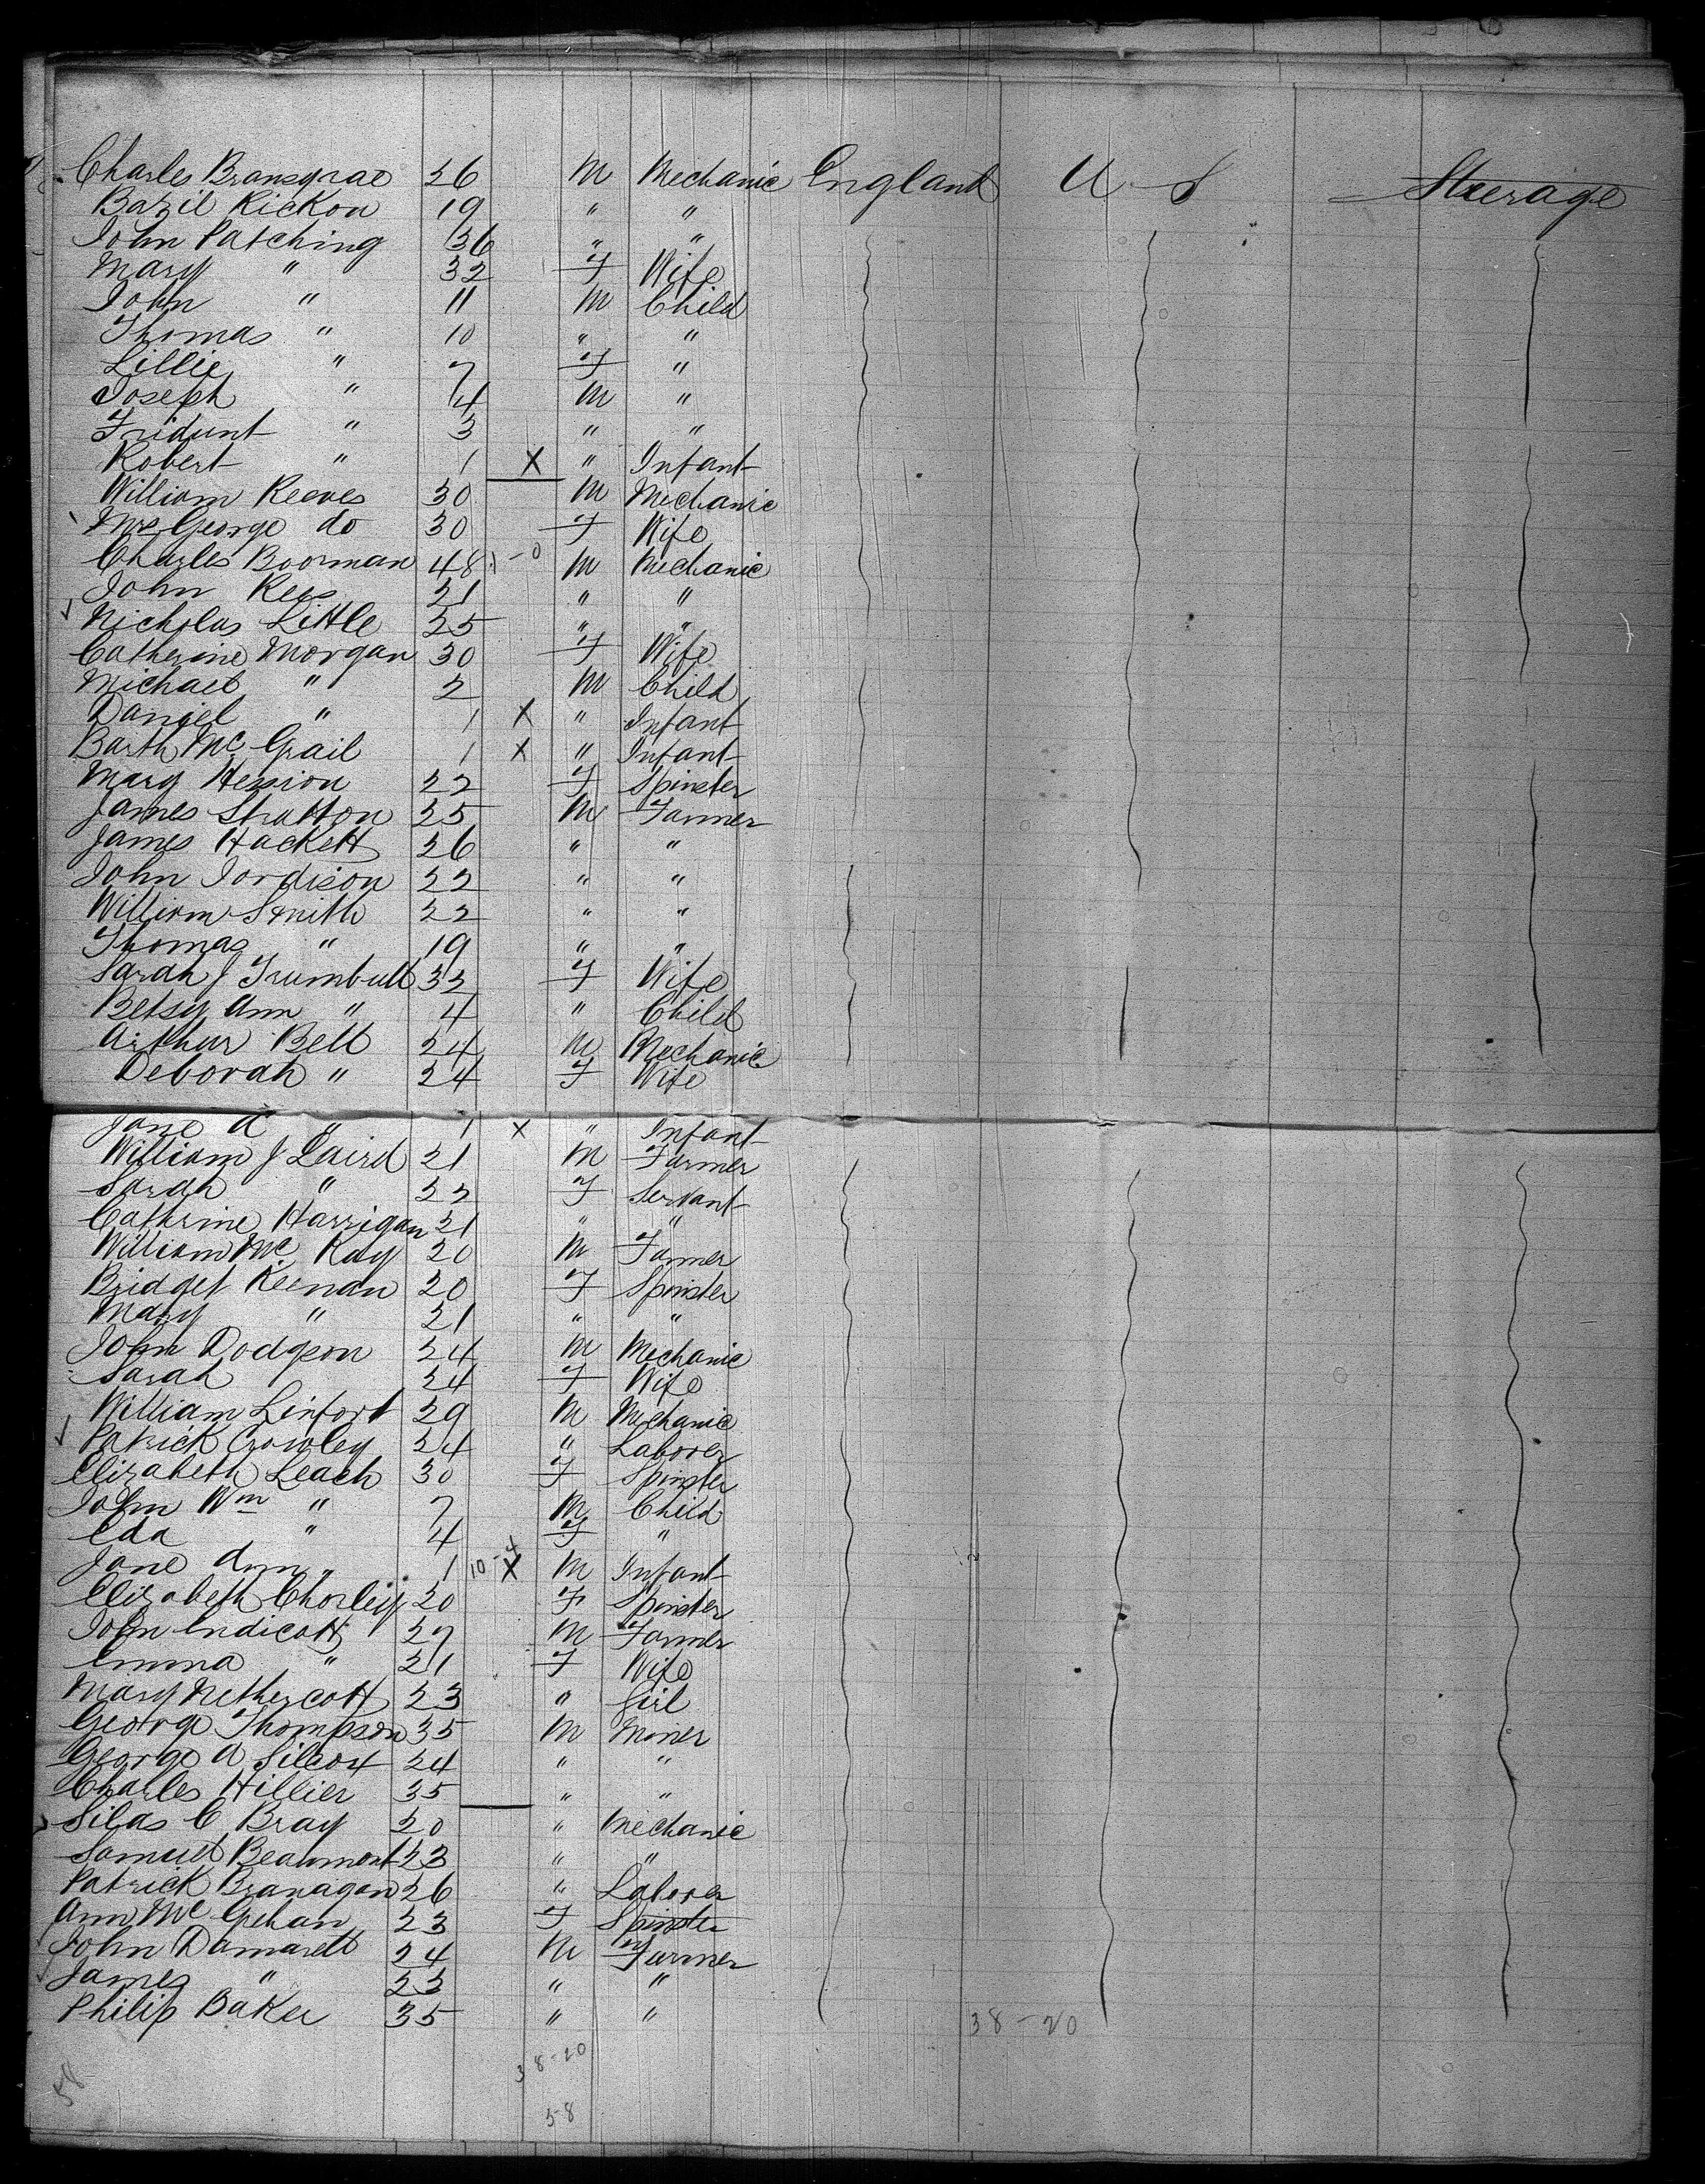 Charles Bransgrae 26 M Mechanic England U S Steerage
Bazil Rickon 19 " "
John Patching 36 " "
Mary " 32 F Wife
John " 11 M Child
Thomas " 10 " "
Lillie " 7 F "
Joseph " 4 M "
Fridunt " 3 " "
Robert " 1 X " Infant
William Reeves 30 M Mechanic
Mrs George do 30 F Wife
Charles Boorman 48 M Mechanic
John Rees 21 " "
Nicholas Little 25 " "
Catherine Morgan 30 F Wife
Michael " 2 M Child
Daniel " 1 X " Infant
Barth Mc Grail 1 X " Infant
Mary Hession 22 F Spinster
James Stratton 25 M Farmer
James Hackett 26 " "
John Jordison 22 " "
William Smith 22 " "
Thomas " 19 " "
Sarah J Trumbull 32 F Wife
Betsy Ann " 4 " Child
Arthur Bell 24 M Mechanic
Deborah " 24 F Wife
Jane A " 1 X " Infant
William J Laird 21 M Farmer
Sarah " 22 F Servant
Cathrine Harrigan 21 " "
William Mc Kay 20 M Farmer
Bridget Keenan 20 F Spinster
Mary " 21 " "
John Dodgson 24 M Mechanic
Sarah " 24 F Wife
William Linfort 29 M Mechanic
Patrick Crowley 24 " Laborer
Elizabeth Leach 30 F Spinster
John Wm " 7 M Child
Eda " 4 F "
Jane Ann " 1 10-4 X M Infant
Elizabeth Chorley 20 F Spinster
John Endicott 27 M Farmer
Emma " 21 F Wife
Mary Nethercott 23 " Girl
George Thompson 35 M Miner
George A Silcox 24 " "
Charles Hillier 35 " "
Silas C Bray 20 " Mechanic
Samuel Beaumont 23 " "
Patrick Branagan 26 " Laborer
Ann Mc Gehan 23 F Spinster
John Damarell 24 M Farmer
James " 22 " "
Philip Baker 35 " "
38-20
38-20
58
58